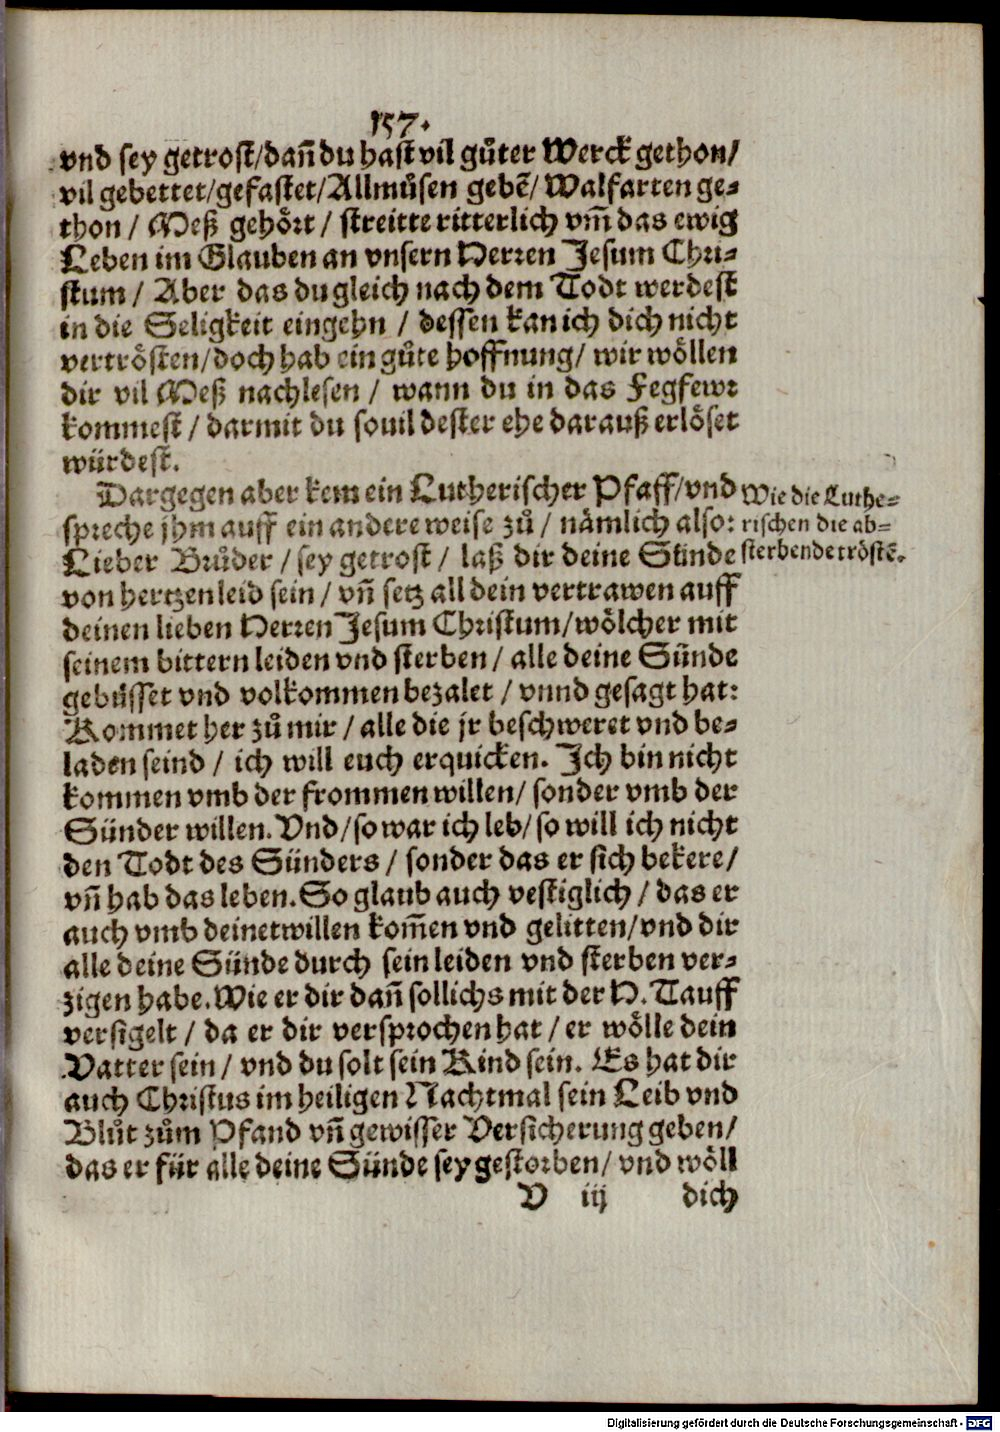 157.
vnd sey getrost/dañ du hast vil gůter Werck gethon/
vil gebettet/gefastet/Allmůsen gebẽ/ Walfarten ge⸗
thon / Meß gehört / streitte ritterlich vm̃ das ewig
Leben im Glauben an vnsern Herren Jesum Chri⸗
stum / Aber das du gleich nach dem Todt werdest
in die Seligkeit eingehn / dessen kan ich dich nicht
vertrösten/doch hab ein gůte hoffnung/ wir wöllen
dir vil Meß nachlesen / wann du in das Fegfewr
kommest / darmit du souil dester ehe darauß erlöset
würdest.
Dargegen aber kem ein Lutherischer Pfaff/vnd
spreche jhm auff ein andere weise zů / nämlich also:
Wie die Luthe⸗
rischen die ab⸗
sterbende tröstẽ.
Lieber Brůder / sey getrost / laß dir deine Sünde
von hertzen leid sein / vñ setz all dein vertrawen auff
deinen lieben Herren Jesum Christum/wölcher mit
seinem bittern leiden vnd sterben / alle deine Sünde
gebüsset vnd volkommen bezalet / vnnd gesagt hat:
Kommet her zů mir / alle die jr beschweret vnd be⸗
laden seind / ich will euch erquicken. Ich bin nicht
kommen vmb der frommen willen/ sonder vmb der
Sünder willen. Vnd/so war ich leb/so will ich nicht
den Todt des Sünders / sonder das er sich bekere/
vñ hab das leben. So glaub auch vestiglich / das er
auch vmb deinetwillen kom̃en vnd gelitten/vnd dir
alle deine Sünde durch sein leiden vnd sterben ver⸗
zigen habe. Wie er dir dañ sollichs mit der H. Tauff
versigelt / da er dir versprochen hat / er wölle dein
Vatter sein / vnd du solt sein Kind sein. Es hat dir
auch Christus im heiligen Nachtmal sein Leib vnd
Blůt zům Pfand vñ gewisser Versicherung geben/
das er für alle deine Sünde sey gestorben/ vnd wöll
V iij dich
Digitalisierung gefördert durch die Deutsche Forschungsgemeinschaft - DFG